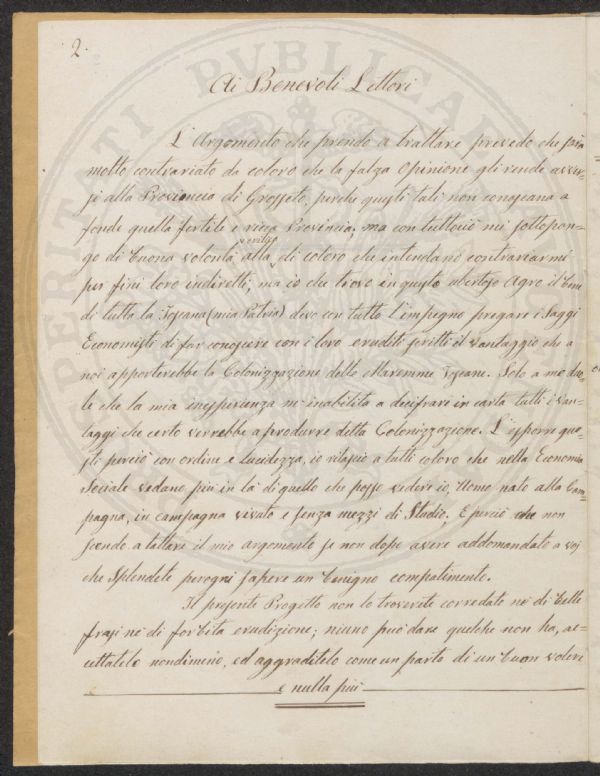 2.
Ai Benevoli Lettori
L'Argomento che prendo a trattare prevedo che sia
molto contrariato da coloro che la falza Opinione gli rende avver-
si alla Provincia di Grosseto, perche questi tali non conoscana a
fondo quella fertile e ricca Provincia, ma con tuttociò mi sottopon-
critica
go di buona volontà alla di coloro che intendano contrariarmi
per fini loro indiretti, ma io che trovo in questo ubertoso Agro il bene
di tutta la Toscana (mia Patria) devo con tutto l'impegno pregare i Saggi
Economisti di far conoscere con i loro eruditi scritti il vantaggio che a
noi apporterebbe la Colonizzazione delle Maremme Toscane. Solo a me duo-
le che la mia inesperienza m'inabilita a decifrare in carta tutti i van-
taggi che certo verrebbe a produrre detta Colonizzazione. L'esporre que-
sti perciò con ordine e lucidezza, io rilascio a tutti coloro che nella Economia
Sociale vedano più in là di quello che posso vedere io, Uomo nato alla Cam-
pagna, in campagna vivuto e senza mezzi di Studio. E perciò che non
scendo a tessere il mio argomento se non dopo avere addomandato a voi
che Splendete perogni sapere un benigno compatimento.
Il presente Progetto non lo troverete corredato nè di belle
frasi nè di forbita erudizione; niuno può dare quelche non ha, ac-
cettatelo nondimeno, ed aggraditelo come un parto di un buon volere
e nulla più
PERITATI PVBLICAE